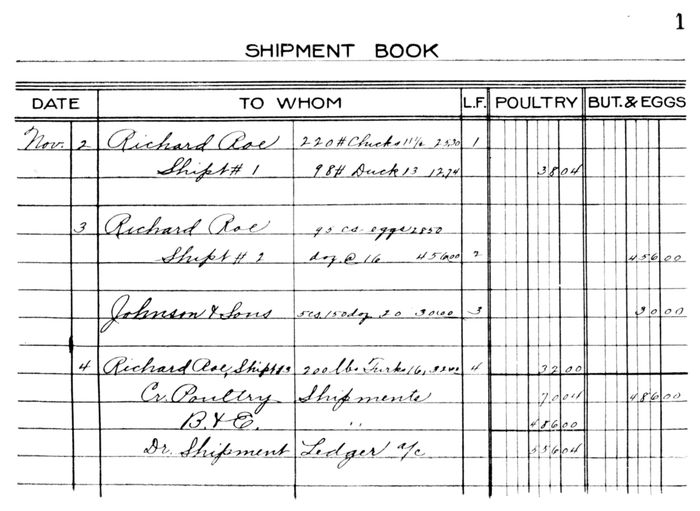 1
SHIPMENT BOOK
DATE TO WHOM L.F. POULTRY BUT. & EGGS
Nov. 2 Richard Roe 220# Chicks 11½ 2530 1
Shipt # 1 98# Duck 13 1274 3804
3 Richard Roe 95 cs. eggs 2850
Shipt # 2 doz @ 16 45600 2 45600
Johnson & Sons 5cs 150 doz 20 3000 3 3000
4 Richard Roe, Shipt #3 200 lbs Turks 16, 3200 4 3200
Cr. Poultry Shipments 7004 48600
B. & E. " 48600
Dr. Shipment Ledger a/c 55604